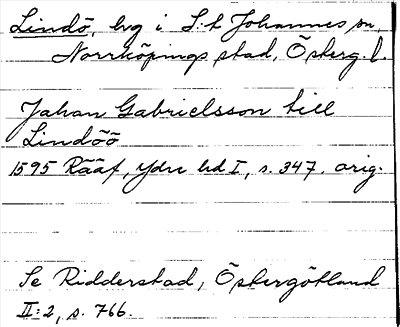 Lindö, hg i S:t Johannes sn,
Norrköpings stad, Österg. l.
Jahan Gabrielsson till
Lindöö
1595 Rääf, Ydre hd I, s. 347. orig.
Se Ridderstad, Östergötland
II:2, s. 766.